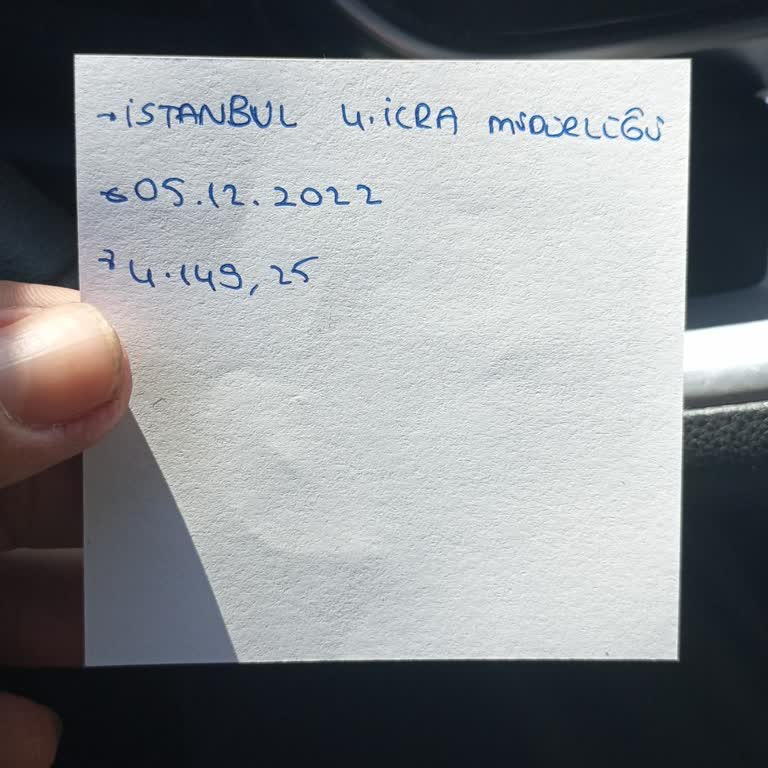 → İSTANBUL 4. İCRA MÜDÜRLÜĞÜ
→ 05.12.2022
→ 4.149,25